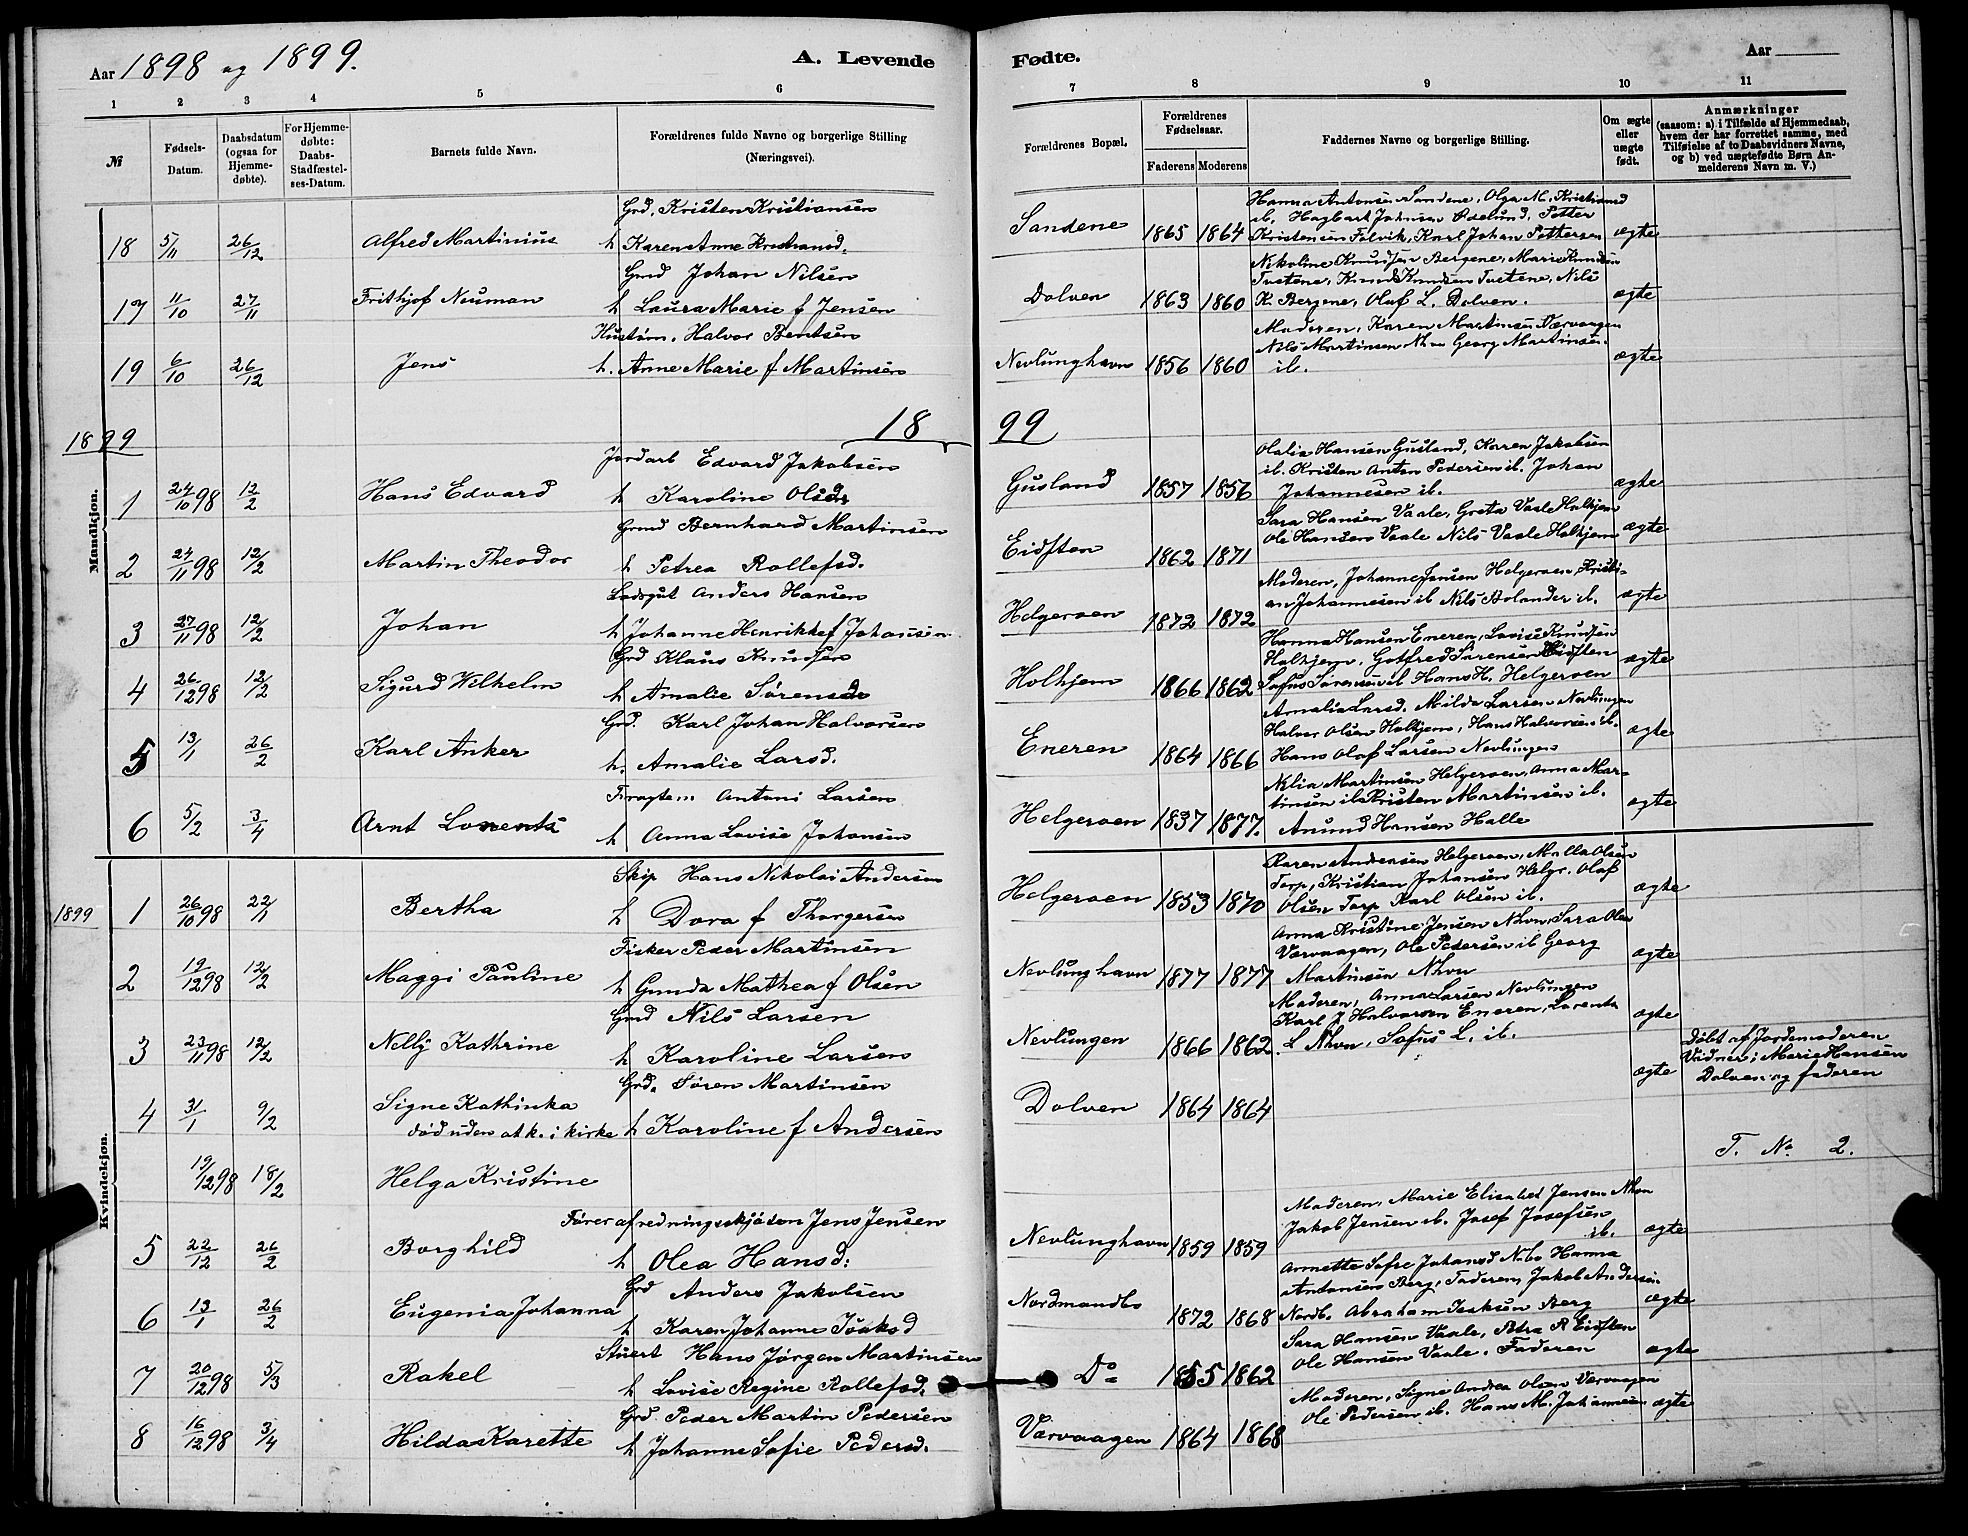 Aar 1898 og 1899.
A. Levende
Fødte.
Aar
1 2 3 4 5 6
7 8 9 10 11
№
Fødsels-
Datum.
Daabsdatum
(ogsaa for
Hjemme-
døbte).
For Hjemme-
døbte:
Daabs-
Stadfæstel-
ses-Datum.
Barnets fulde Navn.
Forældrenes fulde Navne og borgerlige Stilling
(Næringsvei).
Forældrenes Bopæl,
Forældrenes
Fødselsaar.
Faderens Moderens
Faddernes Navne og borgerlige Stilling.
Om ægte
eller
uægte
født.
Anmærkninger
(saasom: a) i Tilfælde af Hjemmedaab,
hvem der har forrettet samme, med
Tilføielse af to Daabsvidners Navne,
og b) ved uægtefødte Børn An-
melderens Navn m. V.)
Mandkjøn.
Grd. Kristen Kristiansen
18 5/11 26/12 Alfred Martinius h Karen Anne Kristiansd.
Sandene 1865 1864
Hanna Antonsen Sandene, Olga M. Kristiansd
ib. Hagbart Johnsen Petter
Kristensen Karl Johan Pettersen ægte
Gmd Johan Nilsen
17 11/10 27/11 Frithjof Neuman h Laura Marie f Jensen
Dolven 1863 1860
Nikoline Knudsen Bergene, Marie Knudsen
Tvetene, Knud Knudsen Tvetene, Nils
K. Bergene, Olaf L. Dolven. ægte
Hustøm. Halvor Bentsen
19 6/10 26/12 Jens h. Anne Marie f Martinsen
Nevlunghavn 1856 1860
Moderen, Karen Martinsen Værvaagen
Nils Martinsen Nhvn Georg Martinsen
ib. ægte
1899
18 99
Jordarb Edvard Jakobsen
1 24/10 98 12/2 Hans Edvard h Karoline Olsdr
Gusland 1857 1856
Olalia Hansen Gusland, Karen Jakobsen
ib. Kristen Anton Pedersen ib. Johan
Johannesen ib. ægte
Grmd Bernhard Martinsen
2 24/11 98 12/2 Martin Theodor h Petrea Rollefsd.
Eidsten 1862 1871
Sara Hansen Vaale, Greta Vaale Holkjem
Ole Hansen Vaale Nils Vaale Holkjem ægte
Lodsgut Anders Hansen
3 27/11 98 12/2 Johan h Johanne Henrikke f Johansen
Helgeroen 1872 1872
Moderen, Johanne Jensen Helgeroen, Kristi-
an Johannesen ib Nils Bolander ib. ægte
Grd Klaus Knudsen
4 26/12 98 12/2 Sigurd Wilhelm h Amalie Sørensdr
Holkjem 1866 1862
Hanna Hansen Eneren, Lovise Knudsen
Holkjem, Gotfred Sørensen Eidsten
Sofus Sørensen ib Hans H. Helgeroen ægte
Grd. Karl Johan Halvorsen
5 13/1 26/2 Karl Anker h. Amalie Larsd.
Eneren 1864 1866
Amalia Larsd. Milda Larsen Nevlungen
Halvor Olsen Holkjem, Hans Halvorsen ib.
Hans Olaf Larsen Nevlungen ægte
Fragtem. Antoni Larsen
6 5/2 3/4 Arnt Lorents h Anna Lovise Johansen
Helgeroen 1837 1877.
Nilia Martinsen Helgeroen, Anna Mar-
tinsen ib Kristen Martinsen ib.
Anund Hansen Halle ægte
1899
Kvindekjøn.
Skip Hans Nikolai Andersen
1 26/10 98 22/1 Bertha h Dora f Thorgersen
Helgeroen 1853 1870
Karen Andersen Helgeroen, Malla Olsen
Torp, Kristian Johansen Helgr. Olaf
Olsen Torp Karl Olsen ib. ægte
Fisker Peder Martinsen
2 19/12 98 12/2 Maggi Pauline h Gunda Mathea f Olsen
Nevlunghavn 1877 1877
Anna Kristine Jensen Nhvn, Sara Olsen
Værvaagen, Ole Pedersen ib Georg
Martinsen Nhvn ægte
Gmd Nils Larsen
3 23/11 98 12/2 Nelly Kathrine h Karoline Larsen
Nevlungen 1866 1862.
Moderen, Anna Larsen Nevlungen
Karl J Halvorsen Eneren, Lorents
L Nhvn, Sofus L. ib. ægte
Grd. Søren Martinsen
4 31/1 9/2 Signe Kathinka
død uden at k. i kirke h Karoline f Andersen
Dolven 1864 1864 ægte
Døbt af Jordemoderen
Vidner: Marie Hansen
Dolven og faderen
19/12 98 18/2 Helga Kristine
T. No 2.
Fører af redningsskjøden Jens Jensen
5 22/12 26/2 Borghild h Olea Hansd:
Nevlunghavn 1859 1859
Moderen, Marie Elisabet Jensen Nhvn
Jakob Jensen ib. Josef Josefsen
ib. ægte
Grd Anders Jakobsen
6 13/1 26/2 Eugenia Johanna h Karen Johanne Isaksd
Nordmandbo 1872 1868
Annette Sofie Johansd Nbo Hanna
Antonsen Berg, Faderen, Jakob Andersen
Nordb. Abraham Isaksen Berg ægte
Stuert Hans Jørgen Martinsen
7 20/12 98 5/3 Rakel h Lovise Regine Rollefsd.
Do 1855 1862
Sara Hansen Vaale, Petra R Eidsten
Ole Hansen Vaale. Faderen ægte
Grd. Peder Martin Pedersen
8 16/12 98 3/4 Hilda Karette h Johanne Sofie Pedersd.
Værvaagen 1864 1868
Moderen, Signe Andrea Olsen Værvaagen
Ole Pedersen ib. Hans M. Johannesen ægte